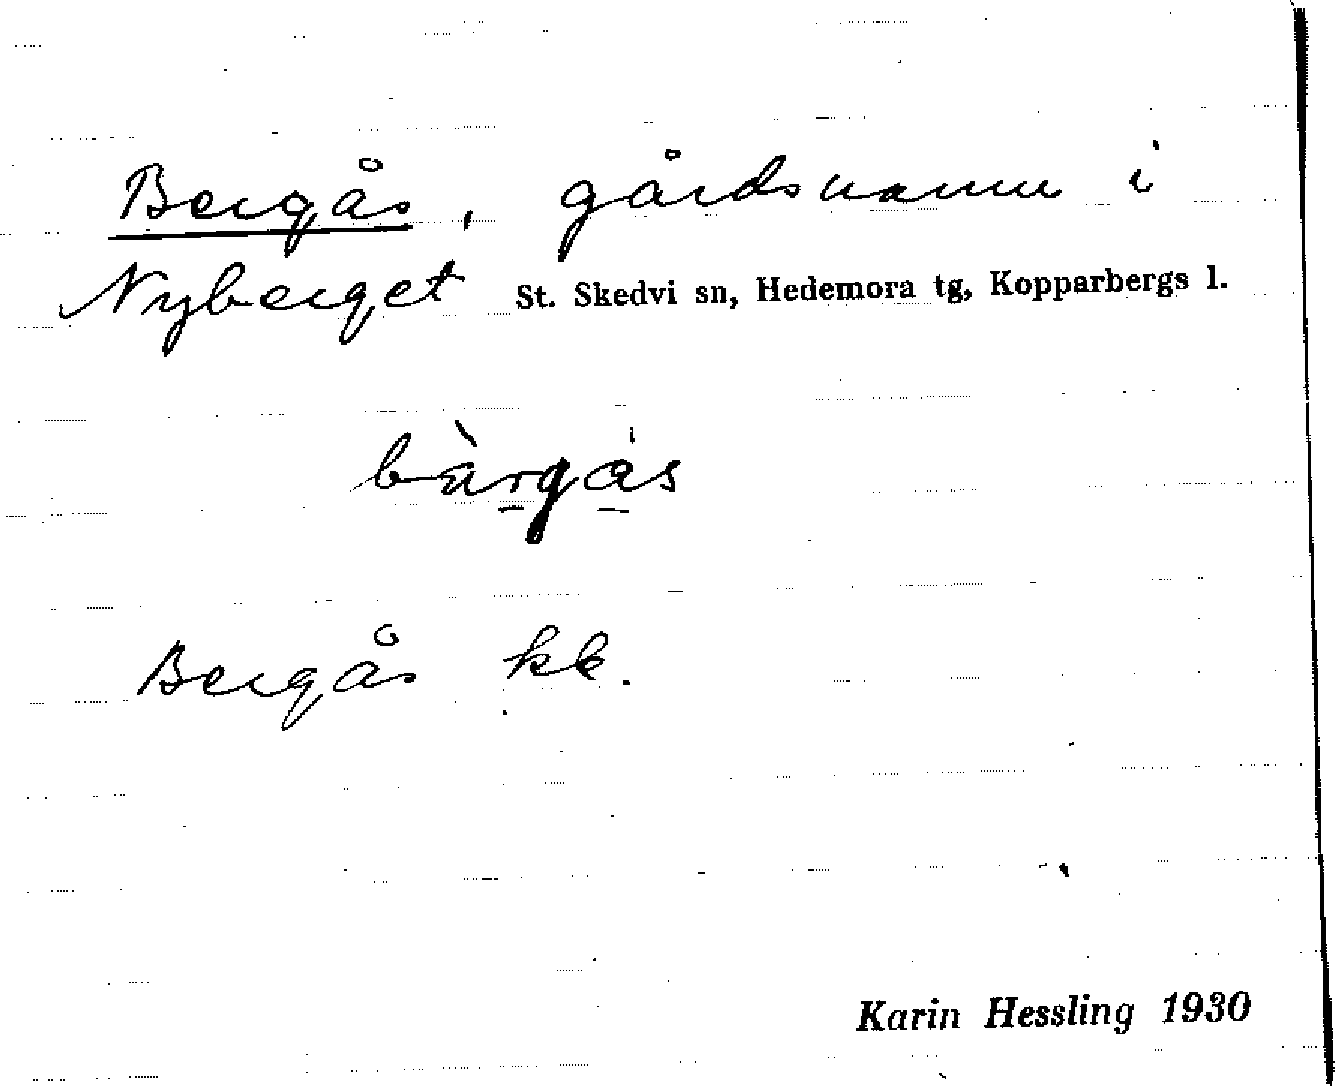 Bergås, gårdsnamn i
Nyberget St. Skedvi sn, Hedemora tg, Kopparbergs l.
bàrgås
Bergås kk.
Karin Hessling 1930